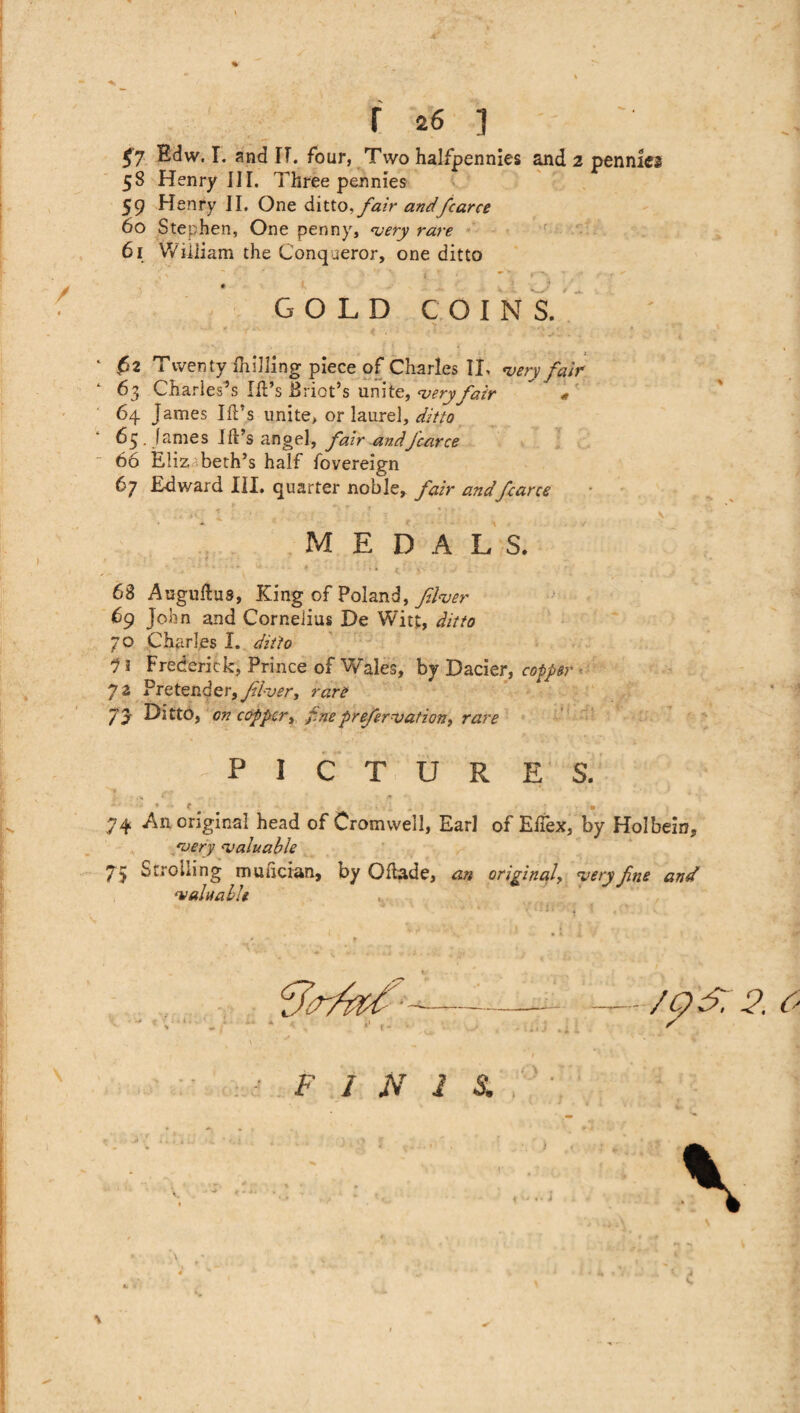 [ 26 ]
57 Edw. I. and II. four, Two halfpennies and 2 pennies
58 Henry III. Three pennies
59 Henry II. One ditto, fair and ſcarce
60 Stephen, One penny, very rare
61 William the Conqueror, one ditto
GOLD COINS.
62 Twenty ſhilling piece of Charles II. very fair
63 Charles's Iſt's Briot's unite, very fair
64 James Iſt's unite, or laurel, ditto
65. James Iſt's angel, fair and ſcarce
66 Elizabeth's half ſovereign
67 Edward III. quarter noble, fair and ſcarce
MEDALS.
68 Auguſtus, King of Poland, ſilver
69 John and Cornelius De Witt, ditto
70 Charles I. ditto
71 Frederick, Prince of Wales, by Dacier, copper
72 Pretender, ſilver, rare
73 Ditto, on copper, fine preſervation, rare
PICTURES.
74 An original head of Cromwell, Earl of Eſſex, by Holbein,
very valuable
75 Strolling muſician, by Oſtade, an original, very fine and
valuable
Total — 195. 2. 6
FINIS.